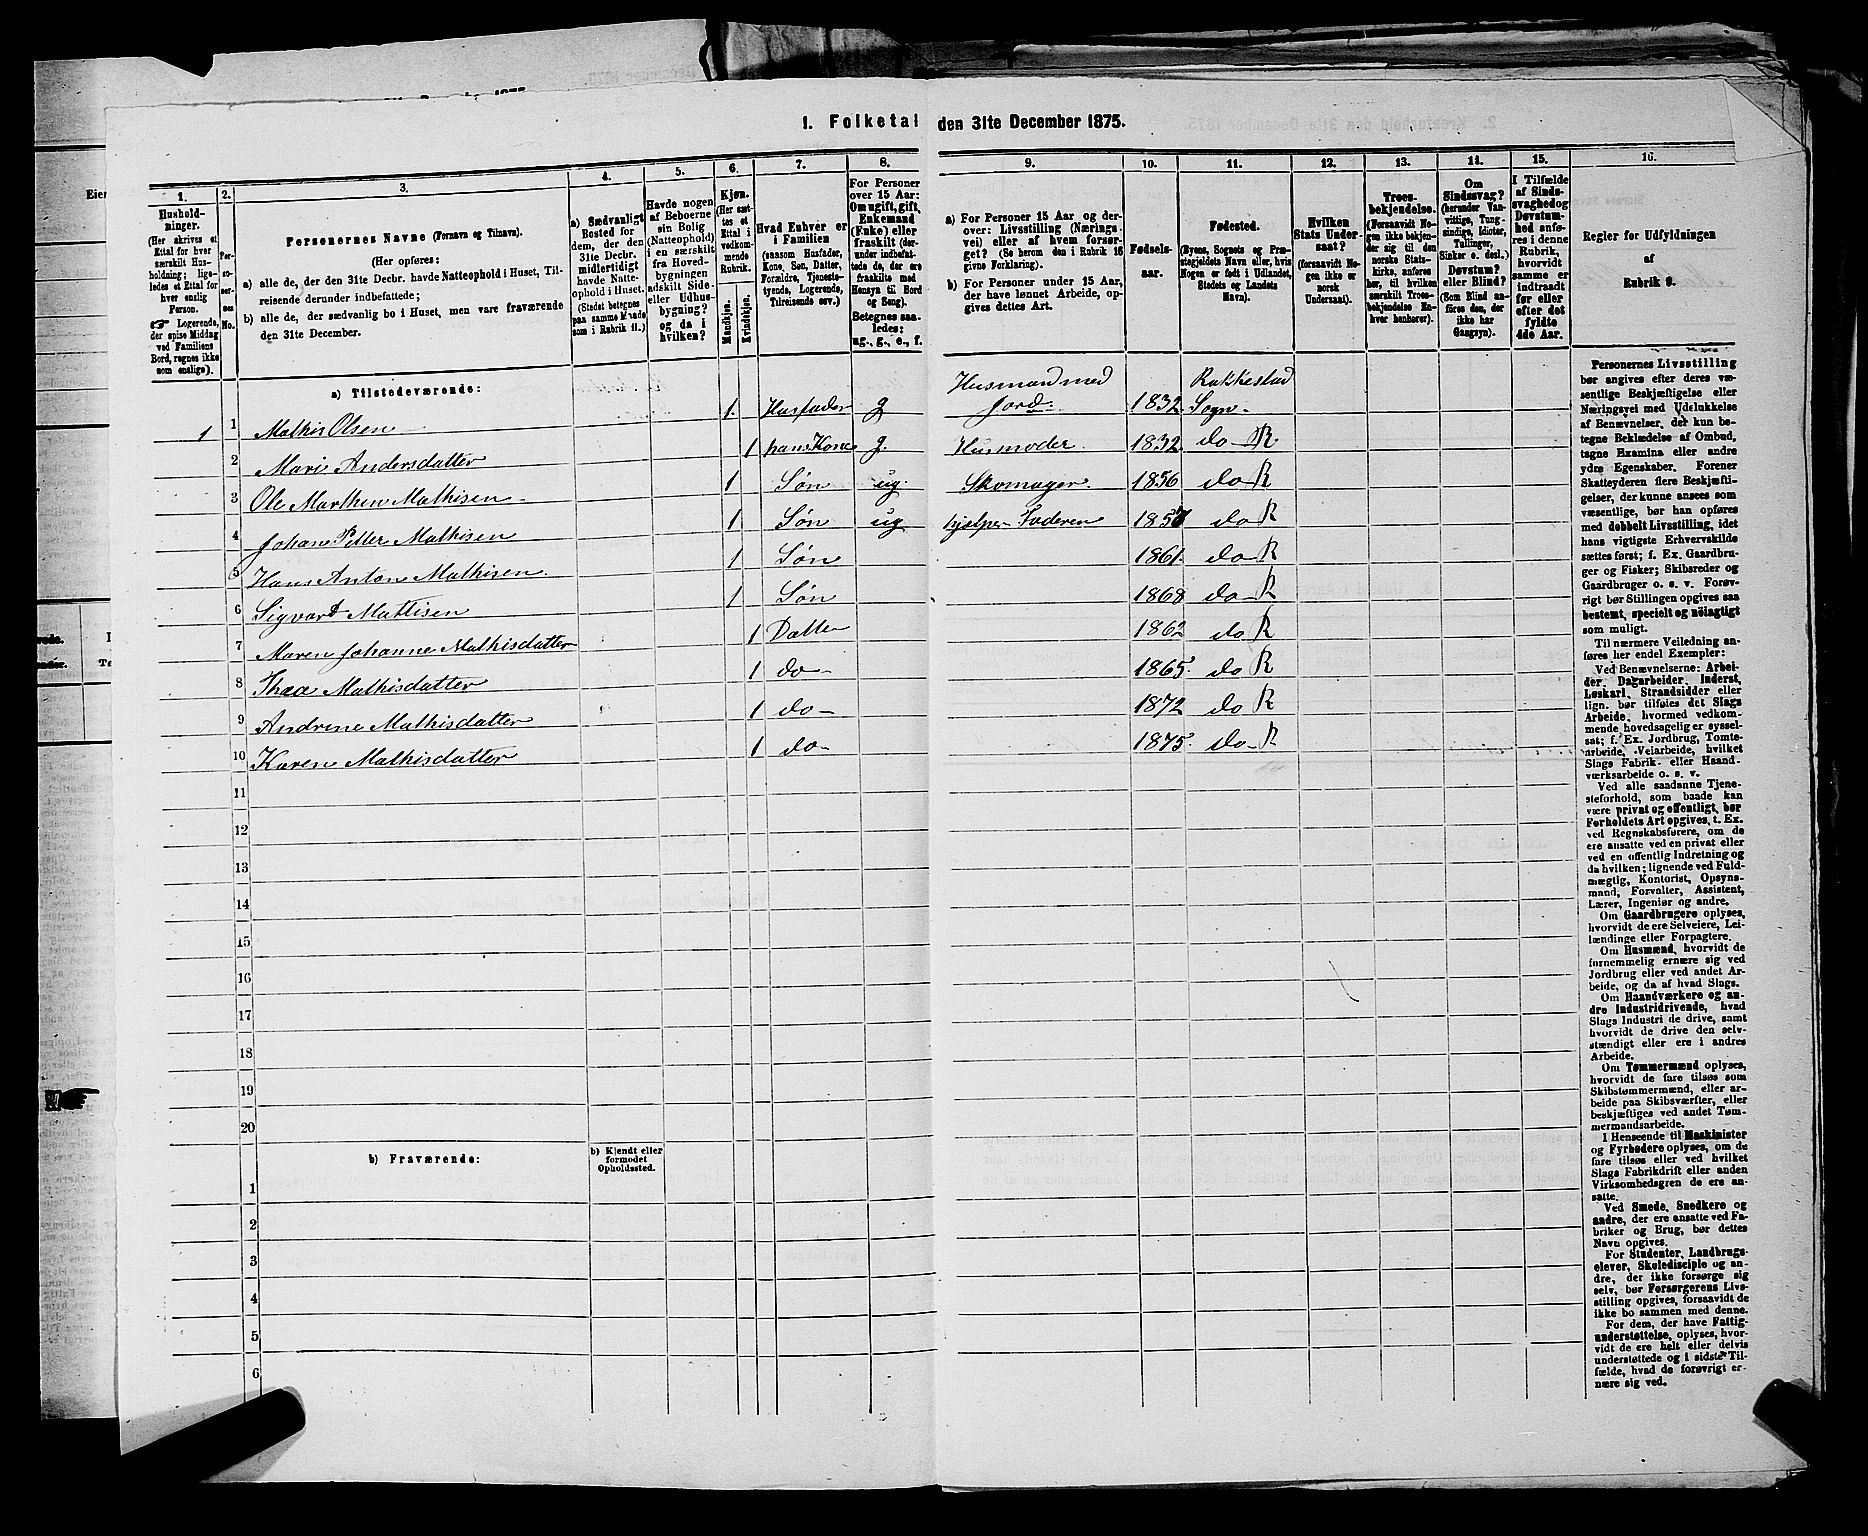 1. Folketal den 31te December 1875.
1. 2. 3. 4. 5. 6. 7. 8. 9. 10. 11. 12. 13. 14. 15. 16.
Hushold-
ninger.
(Her skrives et
Ettal for hver
særskilt Hus-
holdning; lige-
ledes et Ettal for
hver enslig
Person.
☞ Logerende,
der spise Middag
ved Familiens
Bord, regnes ikke
som enslige).
Personernes No.
Personernes Navne (Fornavn og Tilnavn).
(Her opføres:
a) alle de, der den 31te Decbr. havde Natteophold i Huset, Til-
reisende derunder indbefattede;
b) alle de, der sædvanlig bo i Huset, men vare fraværende
den 31te December.
a) Sædvanligt
Bosted for
dem, der den
31te Decbr.
midlertidigt
havde Natte-
ophold i Huset.
(Stedet betegnes
paa samme Maade
som i Rubrik 11.)
Havde nogen
af Beboerne
sin Bolig
(Natteophold)
i en særskilt
fra Hoved-
bygningen
adskilt Side-
eller Udhus-
bygning?
og da i
hvilken?
Kjøn.
(Her sæt-
tes et
Ettal i
vedkom-
mende
Rubrik.
Mandkjøn.
Kvindekjøn.
Hvad Enhver er
i Familien
(saasom Husfader,
Kone, Søn, Datter,
Forældre, Tjeneste-
tyende, Logerende,
Tilreisende osv.)
For Personer
over 15 Aar:
Om ugift, gift,
Enkemand
(Enke) eller
fraskilt (der-
under indbefat-
tede de, der ere
fraskilte med
Hensyn til Bord
og Seng).
Betegnes saa-
ledes:
ug., g., e., f.
a) For Personer 15 Aar og der-
over: Livsstilling (Nærings-
vei) eller af hvem forsør-
get? (Se herom den i Rubrik 16
givne Forklaring).
b) For Personer under 15 Aar,
der have lønnet Arbeide, op-
gives dettes Art.
Fødsels-
aar.
Fødested.
(Byens, Sognets og Præ-
stegjeldets Navn eller, hvis
Nogen er født i Udlandet,
Stedets og Landets
Navn).
Hvilken
Stats Under-
saat?
(forsaavidt No-
gen ikke er
norsk
Undersaat).
Troes-
bekjendelse.
(Forsaavidt No-
gen ikke bekjen-
der sig til den
norske Stats-
kirke, anføres
her, til hvilken
særskilt Troes-
bekjendelse En-
hver henhører).
Om
Sindssvag?
(herunder Van-
vittige, Tung-
sindige, Idioter,
Tullinger,
Sinker o. desl.)
Døvstum?
eller Blind?
(Som Blind an-
føres den, der
ikke har
Gangsyn).
I Tilfælde
af Sinds-
svaghed og
Døvstum-
hed anfø-
res i denne
Rubrik,
hvorvidt
samme er
indtraadt
før eller
efter det
fyldte
4de Aar.
Regler for Udfyldningen
af
Rubrik 9.
a) Tilstedeværende:
1 1 Mathis Olsen 1. Husfader g Husmand med Jord 1832 Rakkestad Sogn
2 Mari Andersdatter 1 hans Kone g. Husmoder 1832 do R
3 Ole Marthin Mathisen 1 Søn ug. Skomager. 1856 do R
4 Johan Petter Mathisen 1 Søn ug hjælper Faderen 1857 do R
5 Hans Anton Mathisen. 1 Søn 1861. do R
6 Sigvart Mattisen 1 Søn 1868 do R
7 Maren Johanne Mathisdatter 1 Datter 1862 do R
8 Thea Mathisdatter 1 do 1865 do R
9 Andrine Mathisdatter 1 do 1872 do R
10 Karen Mathisdatter 1 do 1875. do R
11
12
13
14
15
16
17
18
19
20
b) Fraværende:
b) Kjendt eller
formodet
Opholdssted.
1
2
3
4
5
6
Personernes Livsstilling
bør angives efter deres væ-
sentlige Beskjæftigelse eller
Næringsvei med Udelukkelse
af Benævnelser, der kun be-
tegne Beklædelse af Ombud,
tagne Examina eller andre
ydre Egenskaber. Forener
Skatteyderen flere Beskjæfti-
gelser, der kunne ansees som
væsentlige, bør han opføres
med dobbelt Livsstilling, idet
hans vigtigste Erhvervskilde
sættes først; f. Ex. Gaardbru-
ger og Fisker; Skibsreder og
Gaardbruger o. s. v. Forøv-
rigt bør Stillingen opgives saa
bestemt, specielt og nøiagtigt
som muligt.
Til nærmere Veiledning an-
føres her endel Exempler:
Ved Benævnelserne: Arbei-
der, Dagarbeider, Inderst,
Løskarl, Strandsidder eller
lign. bør tilføies det Slags
Arbeide, hvormed vedkom-
mende hovedsagelig er syssel-
sat; f. Ex. Jordbrug, Tomte-
arbeide, Veiarbeide, hvilket
Slags Fabrik- eller Haand-
værksarbeide o. s. v.
Ved alle saadanne Tjene-
steforhold, som baade kan
være privat og offentligt, bør
Forholdets Art opgives, t. Ex.
ved Regnskabsførere, om de
ere ansatte ved en privat eller
ved en offentlig Indretning og
da hvilken; lignende ved Fuld-
mægtig, Kontorist, Opsyns-
mand, Forvalter, Assistent,
Lærer, Ingeniør og andre.
Om Gaardbrugere oplyses,
hvorvidt de ere Selveiere, Lei-
lændinge eller Forpagtere.
Om Husmænd, hvorvidt de
fornemmelig ernære sig ved
Jordbrug eller ved andet Ar-
beide, og da af hvad Slags.
Om Haandværkere og an-
dre Industridrivende, hvad
Slags Industri de drive, samt
hvorvidt de drive den selv-
stændigt eller ere i andres
Arbeide.
Om Tømmermænd oplyses,
hvorvidt de fare tilsøs som
Skibstømmermænd, eller ar-
beide paa Skibsværfter, eller
beskjæftiges ved andet Tøm-
mermandsarbeide.
I Henseende til Maskinister
og Fyrbødere oplyses, om de
fare tilsøs eller ved hvilket
Slags Fabrikdrift eller anden
Virksomhedsgren de ere an-
satte.
Ved Smede, Snedkere og
andre, der ere ansatte ved Fa-
briker og Brug, bør dettes
Navn opgives.
For Studenter, Landbrugs-
elever, Skoledisciple og an-
dre, der ikke forsørge sig
selv, bør Forsørgerens Livs-
stilling opgives, forsaavidt de
ikke bo sammen med denne.
For dem, der have Fattig-
understøttelse, oplyses, hvor-
vidt de ere helt eller delvis
understøttede og i sidste Til-
fælde, hvad de forøvrigt er-
nære sig ved.